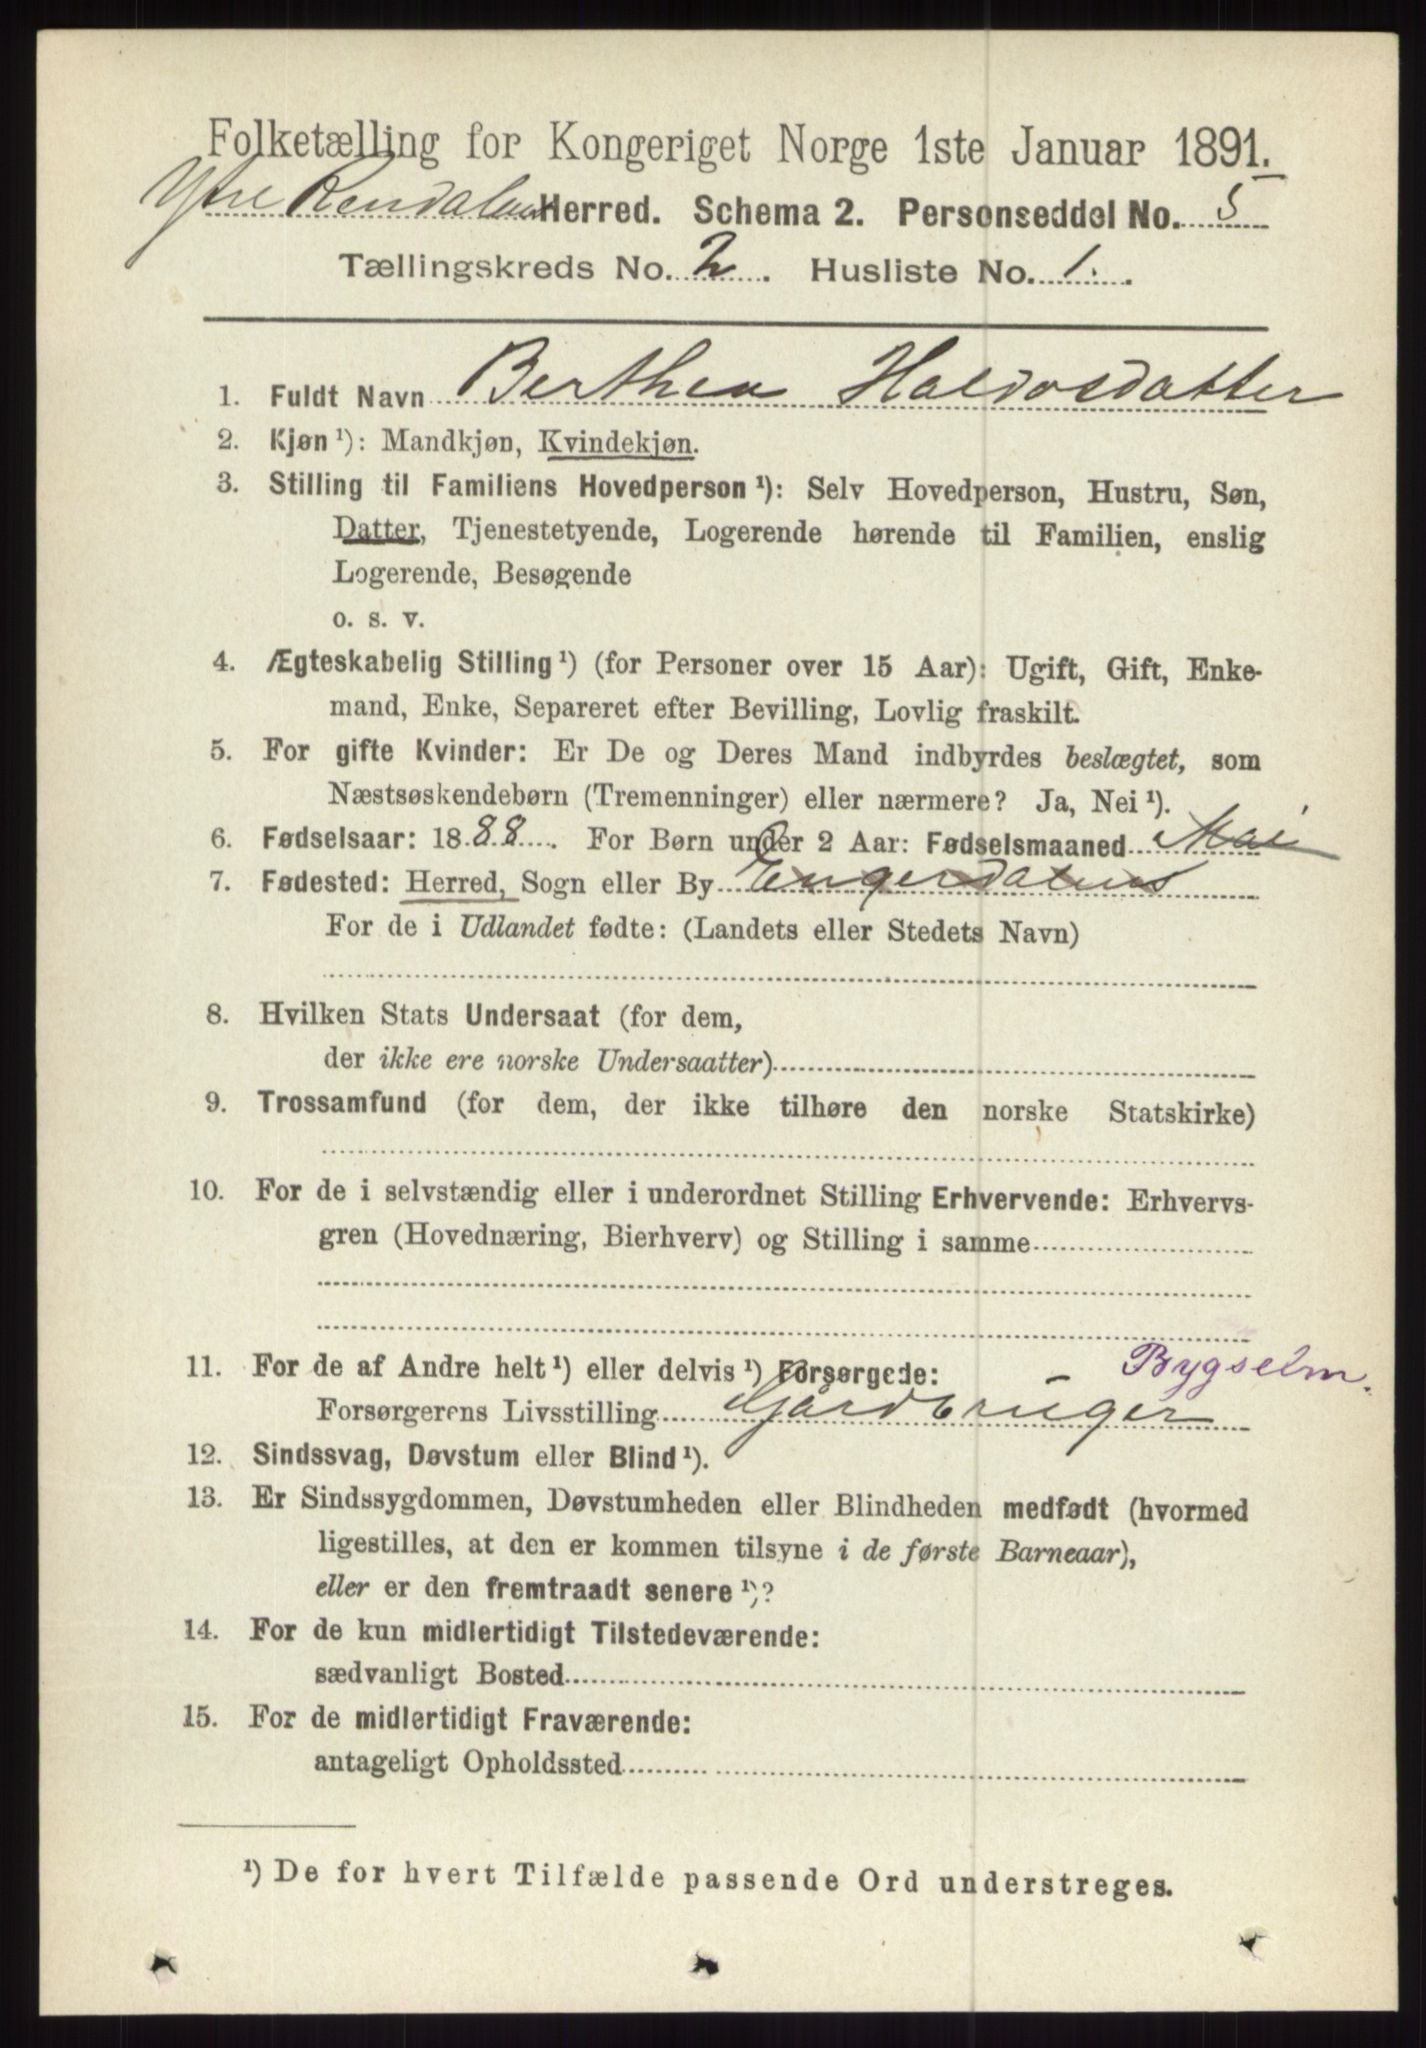 Folketælling for Kongeriget Norge 1ste Januar 1891.
Ytre Rendalen Herred. Schema 2. Personseddel No. 5
Tællingskreds No. 2. Husliste No. 1.
1. Fuldt Navn Berthea Haldosdatter
2. Kjøn¹): Mandkjøn, Kvindekjøn.
3. Stilling til Familiens Hovedperson¹): Selv Hovedperson, Hustru, Søn,
Datter, Tjenestetyende, Logerende hørende til Familien, enslig
Logerende, Besøgende
o. s. v.
4. Ægteskabelig Stilling¹) (for Personer over 15 Aar): Ugift, Gift, Enke-
mand, Enke, Separeret efter Bevilling, Lovlig fraskilt.
5. For gifte Kvinder: Er De og Deres Mand indbyrdes beslægtet, som
Næstsøskendebørn (Tremenninger) eller nærmere? Ja, Nei¹).
6. Fødselsaar: 1888. For Børn under 2 Aar: Fødselsmaaned Mai
7. Fødested: Herred, Sogn eller By Engerdalens
For de i Udlandet fødte: (Landets eller Stedets Navn)
8. Hvilken Stats Undersaat (for dem,
der ikke ere norske Undersaatter)
9. Trossamfund (for dem, der ikke tilhøre den norske Statskirke)
10. For de i selvstændig eller i underordnet Stilling Erhvervende: Erhvervs-
gren (Hovednæring, Bierhverv) og Stilling i samme
Bygselm.
11. For de af Andre helt¹) eller delvis¹) Forsørgede:
Forsørgerens Livsstilling Gårdbruger
12. Sindssvag, Døvstum eller Blind¹).
13. Er Sindssygdommen, Døvstumheden eller Blindheden medfødt (hvormed
ligestilles, at den er kommen tilsyne i de første Barneaar),
eller er den fremtraadt senere¹)?
14. For de kun midlertidigt Tilstedeværende:
sædvanligt Bosted
15. For de midlertidigt Fraværende:
antageligt Opholdssted
¹) De for hvert Tilfælde passende Ord understreges.